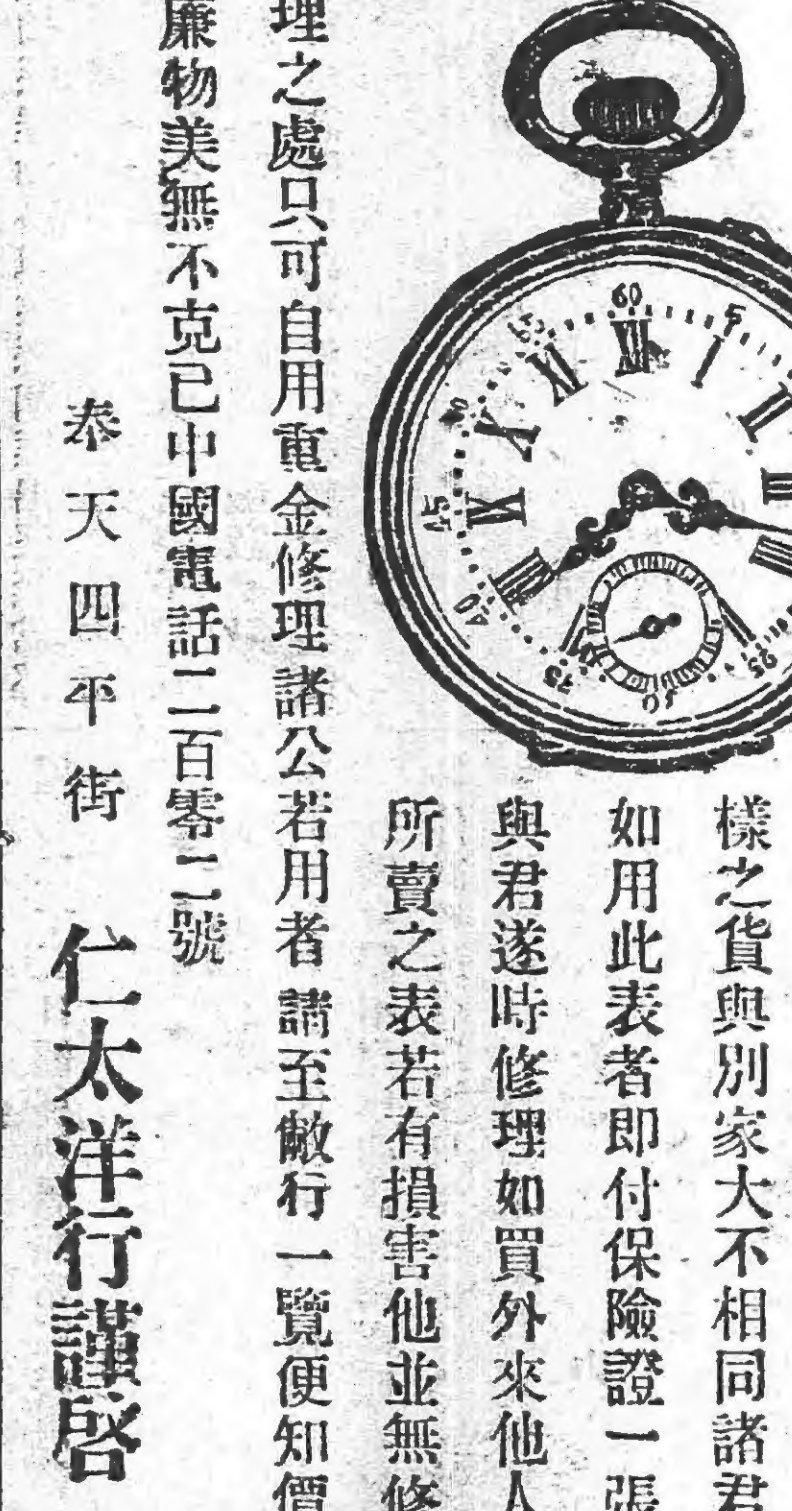 樣之貨與別家大不相同諸君
如用此表者即付保險證一張
與君遂時修理如買外來他人
所賣之表若有損害他並無修
理之處只可自用重金修理諸公若用者請至敝行一覽便知價
廉物美無不克己中國電話二一百零二號
奉天四平街 仁太洋行謹啓
60
5
25
30
35
40
45
I
II
X
XI
XII